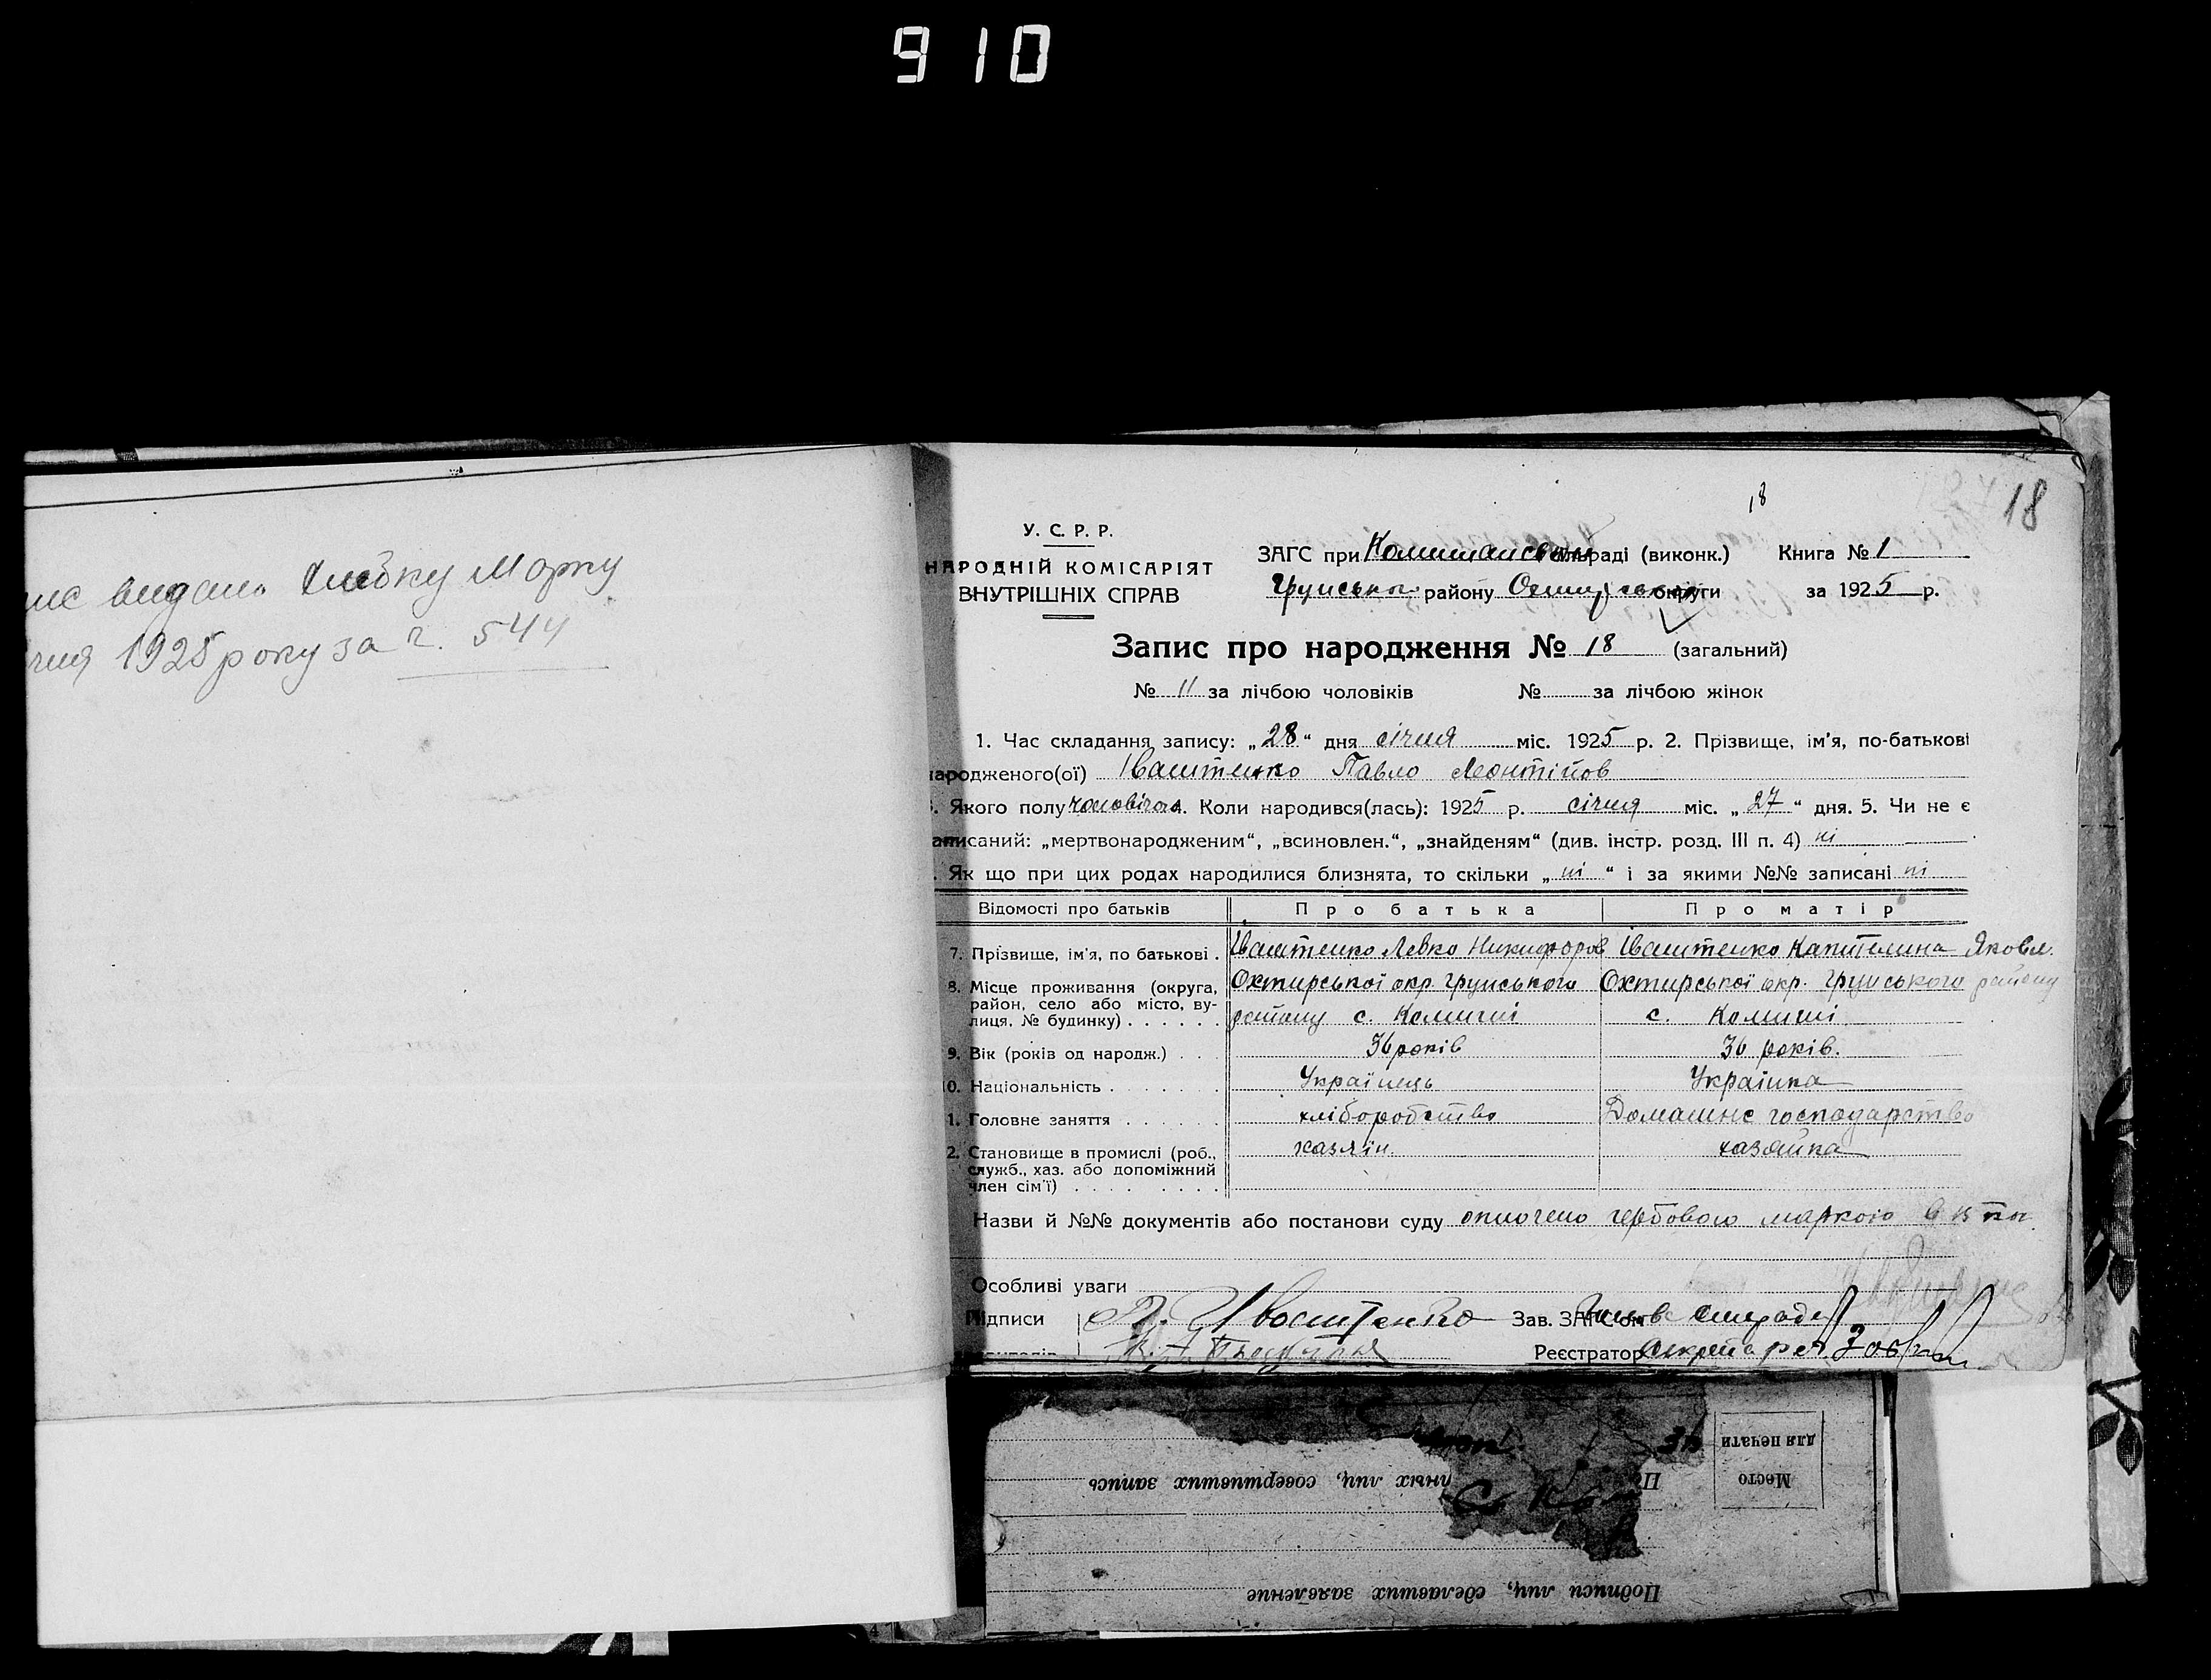 910
видан Хлібку Марку
1925 року за ч. 544
18
18
У. С. Р. Р.
НАРОДНІЙ КОМІСАРІЯТ
ВНУТРІШНІХ СПРАВ
ЗАГС при Комишанській сільраді (виконк.) Книга № 1
Грунського району Охтирської округи за 1925 р.
Запис про народження № 18 (загальний)
№ 11 за лічбою чоловіків № за лічбою жінок
1. Час складання запису: „28“ дня січня міс. 1925 р. 2. Прізвище, ім'я, по-батькові
народженого(ої) Іваштенко Павло Леонтійов
Якого полу чоловічого 4. Коли народився(лась): 1925 р. січня міс. „27“ дня. 5. Чи не є
записаний: „мертвонародженим“, „всиновлен.“, „знайденям“ (див. інстр. розд. III п. 4) ні
Як що при цих родах народилися близнята, то скільки „ні“ і за якими №№ записані ні
Відомості про батьків Про батька Про матір
7. Прізвище, ім'я, по батькові . Іваштенко Левко Никифоров Іваштенко Капителина Яковл.
8. Місце проживання (округа, Охтирської окр. Грунського Охтирської окр. Грунського району
район, село або місто, ву-
лиця, № будинку) . . . . . . району с. Комиші с. Комиші
9. Вік (років од народж.) . . . 36 років 36 років.
10. Національність . . . . . . . Українець Українка
1. Головне заняття . . . . . . хліборобство Домашнє господарство
2. Становище в промислі (роб., хазяїн. хазяйка
служб., хаз. або допоміжний
член сім'ї) . . . . . . . .
Назви й №№ документів або постанови суду оплочено гербовою маркою в 15 коп.
Особливі уваги
Підписи Іваштенко Зав. ЗАГСом сільради
Реєстратор Секретарь
Место
для печати
лиц, совершивших запись
Подписи лиц, сделавших заявление